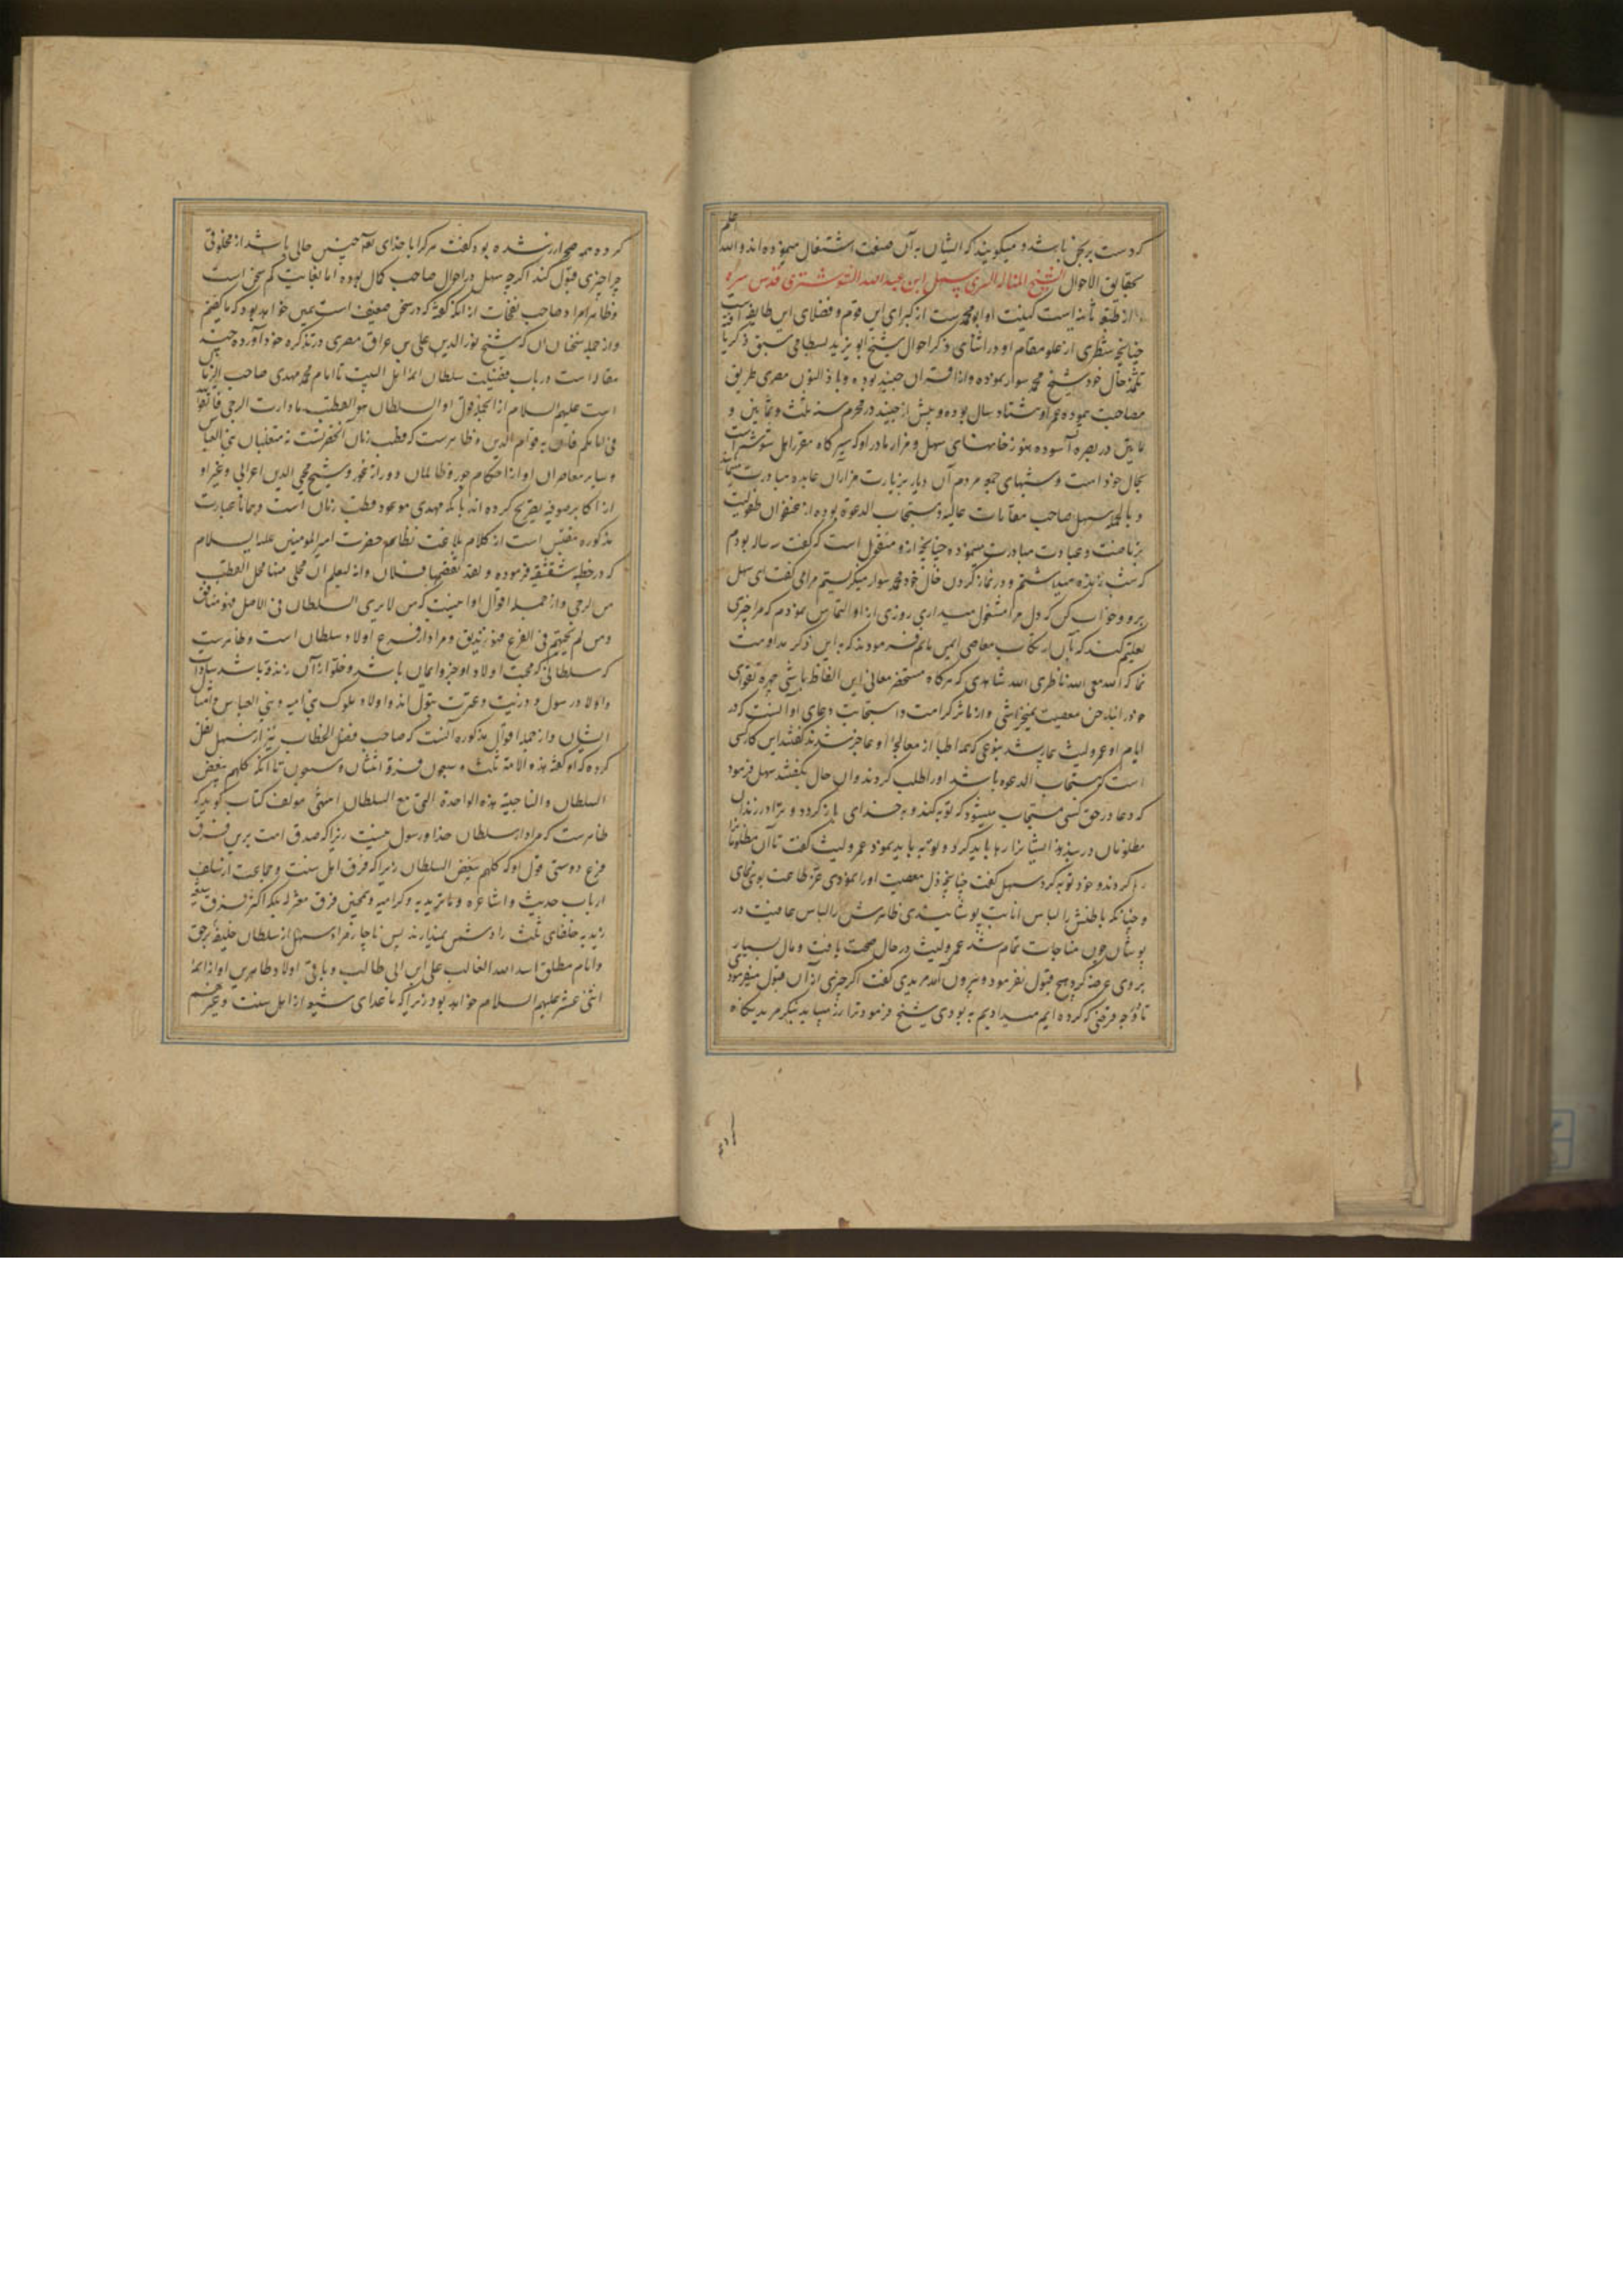 کردست برنجن باشد و میکویند که ایشان به آن صنعت اشتغال مینموده اند والله اعلم
بحقایق الاحوال الشیخ المتاله السری سهل ابن عبدالله التوشتری قدس سره
از طبقه ثانیه است کنیت او ابومحمدست از کبرای این قوم و فضلای این طایفه است
چنانچه شطری از علو مقام او در اثنای ذکر احوال شیخ ابو یزید بسطامی سبق ذکر یافته
تلمذ خال خود شیخ محمد سوار نموده و از اقران جنید بوده و با ذالنون مصری طریق
مصاحبت نموده عمر او هشتاد سال بوده و پیش از جنید در محرم سنه ثلث و ثمانین و
مایتین در بصره آسوده هنوز خانهای سهل و مزار مادر او که سیرکاه مقرر اهل شوشترست
بحال خود است و شبهای جمعه مردم آن دیار بزیارت مزاران عابده مبادرت مینمایند
و بالجمله سهل صاحب مقامات عالیه و مستجاب الدعوة بوده از عنفوان طفولیت
بریاضت و عبادت مبادرت مینموده چنانچه ازو منقول است که کفت سه ساله بودم
که شب زنده میداشتم و در نماز کردن خال خود محمد سوار مینکریستم مرا می کفت ای سهل
برو و خواب کن که دل مرا مشغول میداری روزی از او التماس نمودم که مرا چیزی
تعلیم کند که بآن از ارتکاب معاصی ایمن مانم فرمودند که به این ذکر مداومت
نما که الله معی الله ناظری الله شاهدی که هرکاه مستحضر معانی این الفاظ باشی چهره تقوای
خود را بناخن معصیت نخراشی و از مآثر کرامت و استجابت دعای او آنست که در
ایام او عمرو لیث بیمار شد بنوعی که همه اطبا از معالجهٔ او عاجز شدند کفتند این کار کسی
است که مستجاب الدعوه باشد اورا طلب کردند و آن حال بکفتند سهل فرمود
که دعا در حق کسی مستجاب میشود که توبه کند و به خدای باز کردد و ترا در زندان
مظلومان در بندند ایشانرا رها باید کرد و توبه باید نمود عمرو لیث کفت تا آن مظلومانرا
رها کردند و خود توبه کرد سهل کفت چنانچه ذل معصیت اورا نمودی عز طاعت بوی نمای
و چنانکه باطنش را لباس انابت پوشانیدی ظاهرش را لباس عافیت در
پوشان چون مناجات تمام شد عمرو لیث در حال صحت یافت و مال بسیار
بر وی عرضه کرد هیچ قبول نفرمود و بیرون آمد مریدی کفت اکر چیزی از آن قبول میفرمود
تا وجه قرضی که کرده ایم میدادیم به بودی شیخ فرمود ترا زر میباید بنکر مرید نکاه
کرده همه صحرا زر شده بود کفت هرکرا با خدای تعالی چنین حالی باشد از مخلوقی
چرا چیزی قبول کند اکرچه سهل در احوال صاحب کمال بوده اما بغایت کم سخن است
و ظاهرا مراد صاحب نفحات از انکه کفته که در سخن ضعیف است همین خواهد بود که ما کفتیم
و از جمله سخنان آن که شیخ نورالدین علی بن عراق مصری در تذکره خود آورده چند
مقاله است در باب فضیلت سلطان ائمه اهل البیت تا امام محمد مهدی صاحب الزمان
است علیهم السلام از انجمله قول او السلطان هو القطب مادارت الرحی فاتقوا الله
فی امامکم فانه به قوام الدین و ظاهرست که قطب زمان آنحضرتست نه متغلبان بنی العباس
و سایر معاصران او از احکام جور و ظالمان دور از نجور و شیخ محی الدین اعرابی و غیر او
از اکابر صوفیه تصریح کرده اند بانکه مهدی موعود قطب زمان است و همانا عبارت
مذکوره مقتبس است از کلام بلاغت نظام حضرت امیرالمومنین علیه السلام
که در خطبه شقشقیه فرموده و لقد تقمصها فلان و انه لیعلم ان محلی منها محل القطب
من الرحی و از جمله اقوال او اینست که من لا یری السلطان فی الاصل فهو منافق
و من لم یحبهم فی الفرع فهو زندیق و مراد از فرع اولاد سلطان است و ظاهرست
که سلطانی که محبت اولاد او جزو ایمان باشد و خلو از آن زندقه باشد سادات
و اولاد رسول و ذریت و عترت بتول اند و اولاد ملوک بنی امیه و بنی العباس و امثال
ایشان و از جمله اقوال مذکوره آنست که صاحب فصل الخطاب نیز از سهل نقل
کرده که او کفته هذه الامة ثلث و سبعون فرقه اثنتان و سبعون هالکه کلهم یبغض
السلطان والناجیة هذه الواحدة التی مع السلطان انتهی مولف کتاب کوید که
ظاهرست که مراد از سلطان خدا و رسول نیست زیرا که صدق امت برین فرق
فرع دوستی قول او که کلهم یبغض السلطان زیرا که فرق اهل سنت و جماعت از سلف
ارباب حدیث و اشاعره و ماتریدیه و کرامیه و همچنین فرق معتزله بلکه اکثر فرق شیعه
زیدیه خلفای ثلث را دشمن نمیدارند پس ناچار مراد سهل از سلطان خلیفه برحق
و امام مطلق اسدالله الغالب علی ابن ابی طالب و باقی اولاد طاهرین او از ائمه
اثنی عشر علیهم السلام خواهد بود زیرا که ماعدای شیعه از اهل سنت و غیرهم